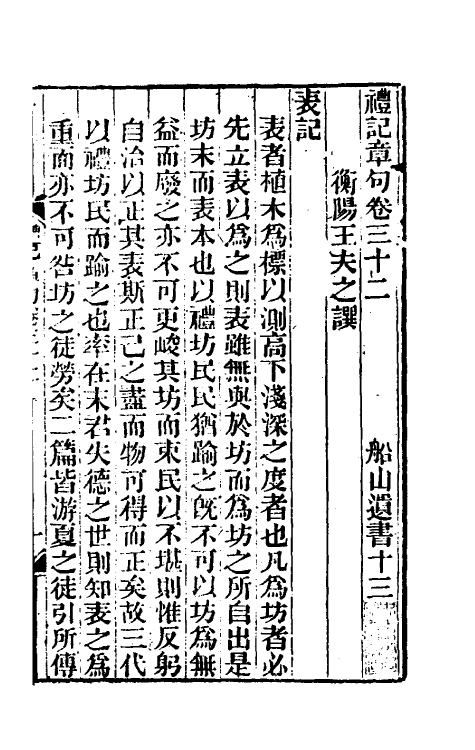 禮記章句卷三十二 船山遺書十三
衡陽王夫之譔
表記
表者植木爲標以測高下淺深之度者也凡爲坊者必
先立表以爲之則表雖無與於坊而爲坊之所自出是
坊末而表本也以禮坊民民猶踰之旣不可以坊爲無
益而廢之亦不可更峻其坊而束民以不堪則惟反躬
自治以正其表斯正己之盡而物可得而正矣故三代
以禮坊民而踰之也率在末君失德之世則知表之爲
重而亦不可咎坊之徒勞矣二篇皆游夏之徒引所傳